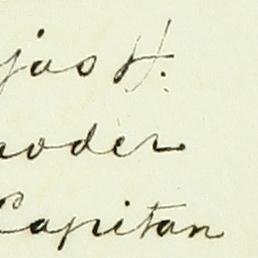 jas H.
oder
Capitan